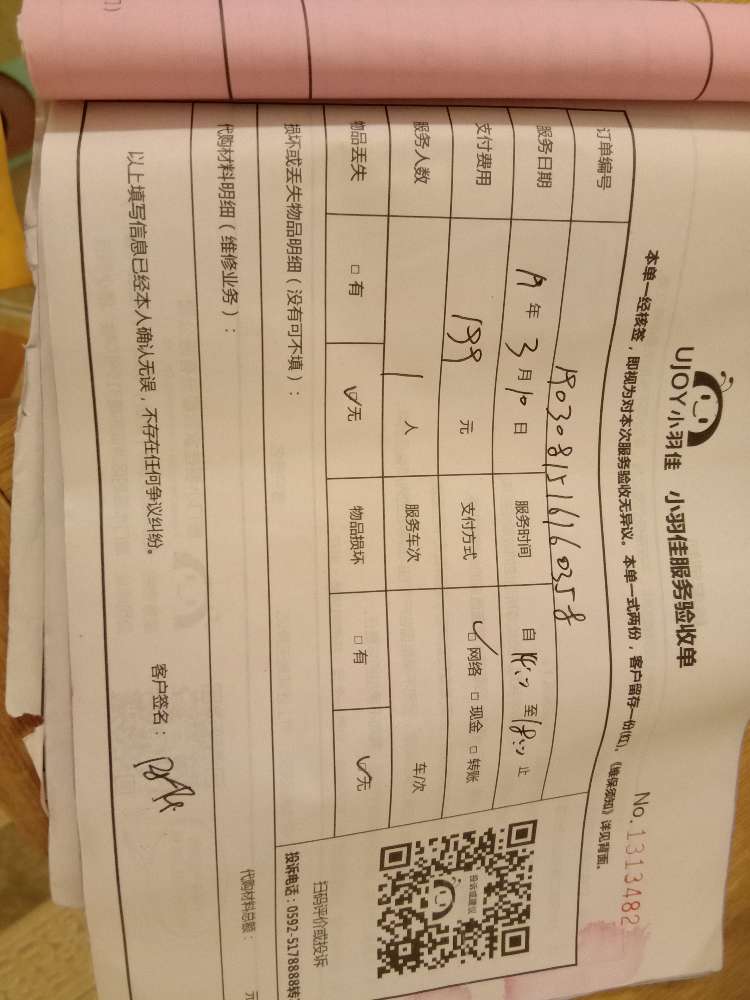 UJOY小羽佳 小羽佳服务验收单
No.1313482
本单一经核签，即视为对本次服务验收无异议。本单一式两份，客户留存一份(红)，《维保须知》详见背面。
订单编号 1903081516160358
服务日期 19年3月10日 服务时间 自14:00至18:00止
支付费用 199元 支付方式 ☑网络 □现金 □转账
服务人数 1人 服务车次 车/次
物品丢失 □有 ☑无 物品损坏 □有 ☑无
损坏或丢失物品明细（没有可不填）：
投诉或建议
扫码评价或投诉
投诉电话：0592-5178888转
代购材料明细（维修业务）：
代购材料总额： 元
以上填写信息已经本人确认无误，不存在任何争议纠纷。 客户签名：